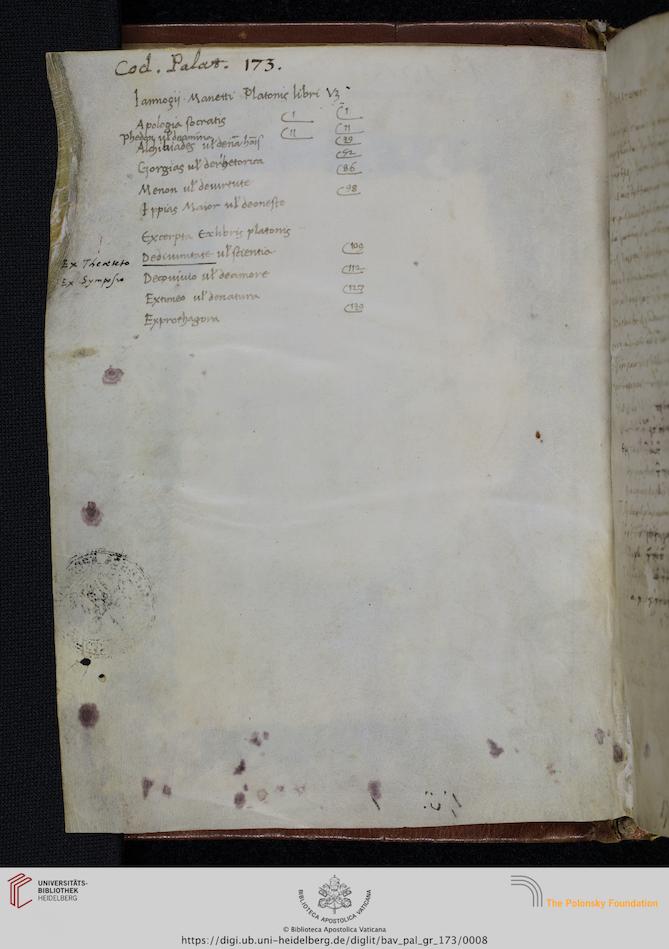 Cod. Palat. 173.
Iannozij Manetti Platonis libri
Apologia socratis I 1
Phedon ul' deanima II 11
Alchibiades ul' de 39
Gorgias ul' derhetorica 52
Menon ul' devirtute 86
Ippias Maior ul' deonesto 98
Excerpta Exlibris platonis
Ex Theateto Dedivinitate ul' scientia 100
Ex Symposio Deconuiuio ul' deamore 112
Extimeo ul' denatura 127
Exprothagora 130
UNIVERSITÄTS-
BIBLIOTHEK
HEIDELBERG
BIBLIOTECA APOSTOLICA VATICANA
The Polonsky Foundation
© Biblioteca Apostolica Vaticana
https://digi.ub.uni-heidelberg.de/diglit/bav_pal_gr_173/0008